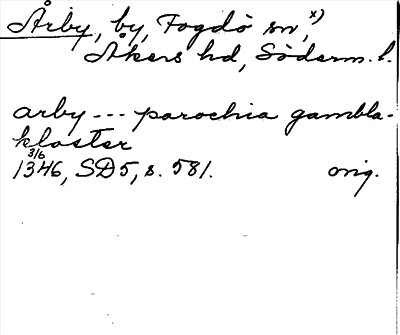 Årby, by, Fogdö sn, x)
Åkers hd, Söderm. l.
arby --- parochia gambla-
kloster
3/6
1346, SD5, s. 581. orig.